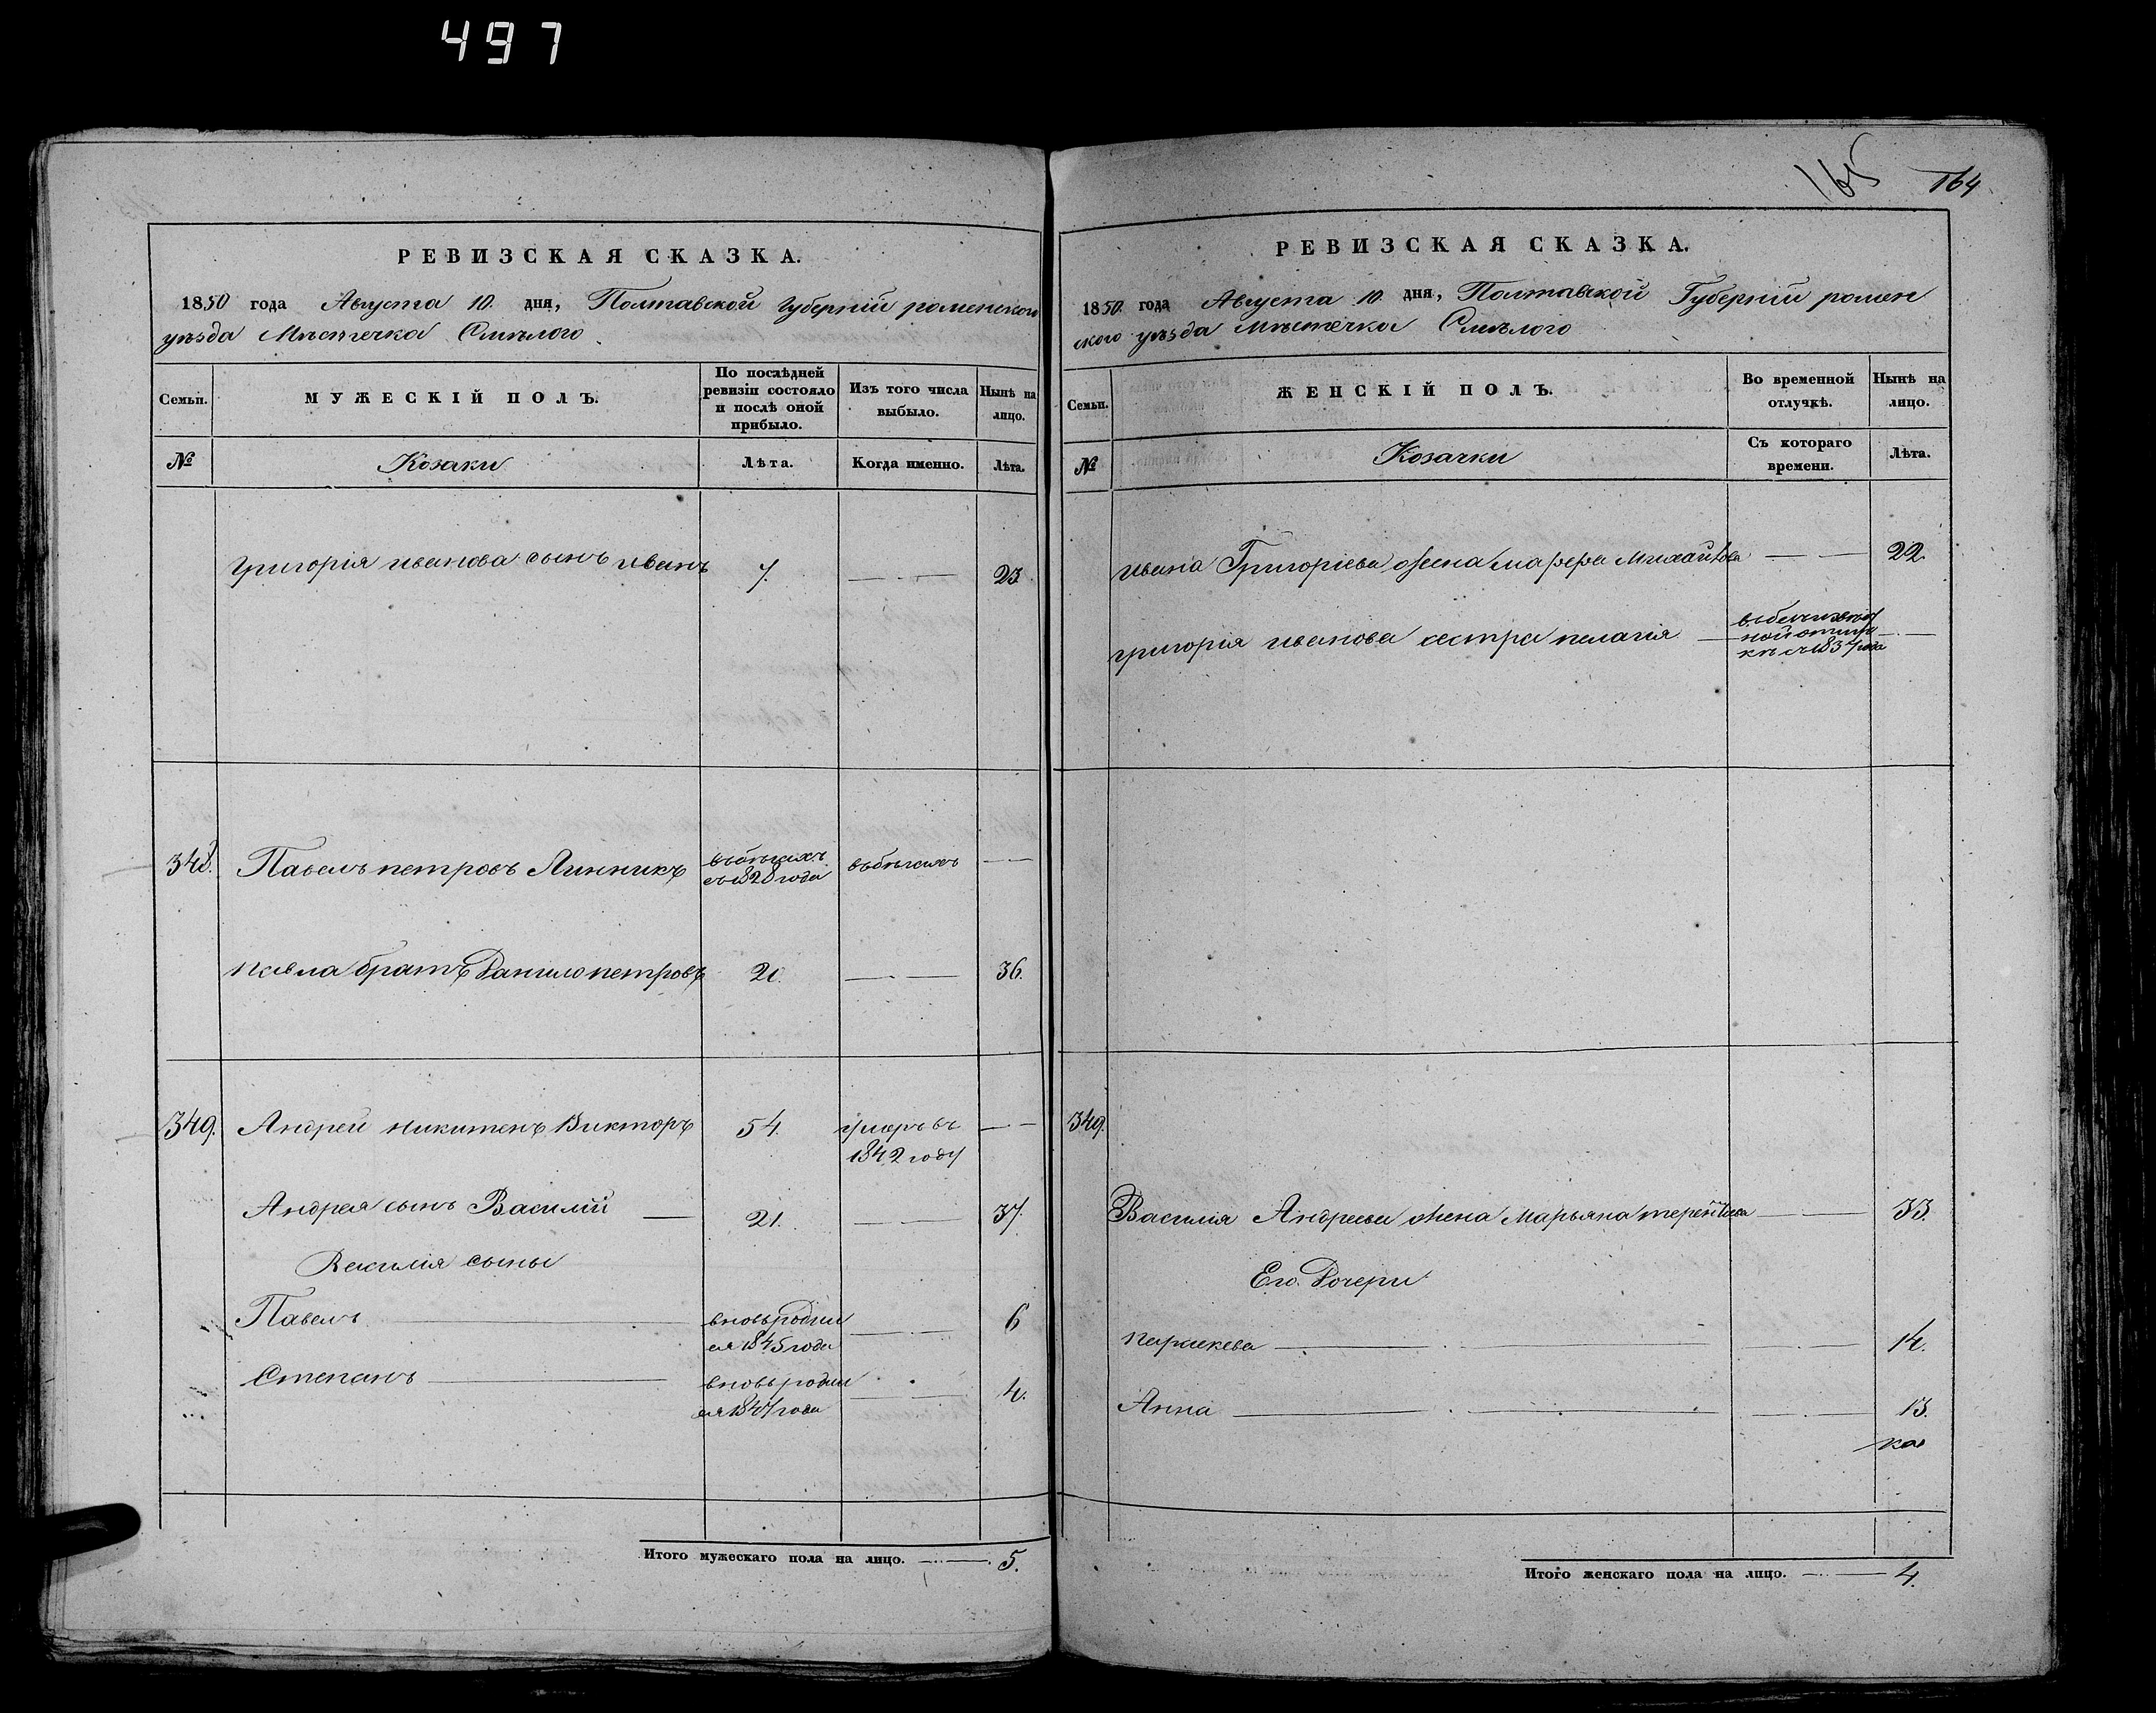 497
РЕВИЗСКАЯ СКАЗКА.
1850 года Августа 10. дня, Полтавской губерніи роменского
уѣзда Мѣстечка Смѣлого
Семьи.
МУЖЕСКІЙ ПОЛЪ.
По послѣдней
ревизіи состояло
и послѣ оной
прибыло.
Изъ того числа
выбыло.
Нынѣ на
лицо.
№
Козаки
Лѣта.
Когда именно.
Лѣта.
григорія иванова сынъ иванъ 7. 23
348. Павелъ петровъ Линникъ
въ бѣгахъ
съ 1828 года
въ бѣгахъ
павла братъ Данило петровъ 20. 36.
349. Андрей никитенъ Викторъ 54.
умеръ въ
1842 году
Андрея сынъ Василій 21. 37.
Василія сыны
Павелъ
вновь родил
ся 1845 года
6
Степанъ
вновь родил
ся 1847 года
4.
Итого мужескаго пола на лицо. 5.
165 164
РЕВИЗСКАЯ СКАЗКА.
1850 года Августа 10. дня, Полтавской Губерніи ромен
ского уѣзда мѣстечка Смѣлого
Семьи.
ЖЕНСКІЙ ПОЛЪ.
Во временной
отлучкѣ.
Нынѣ на
лицо.
№
Козачки
Съ котораго
времени.
Лѣта.
ивана Григоріева жена марфа Михайлова 22.
григорія иванова сестра пелагія
кѣ съ 1837 года
349.
Василія Андреева жена Марьяна терентіева 33.
Его Дочери
параскева 14.
Анна 13.
Итого женскаго пола на лицо. 4.